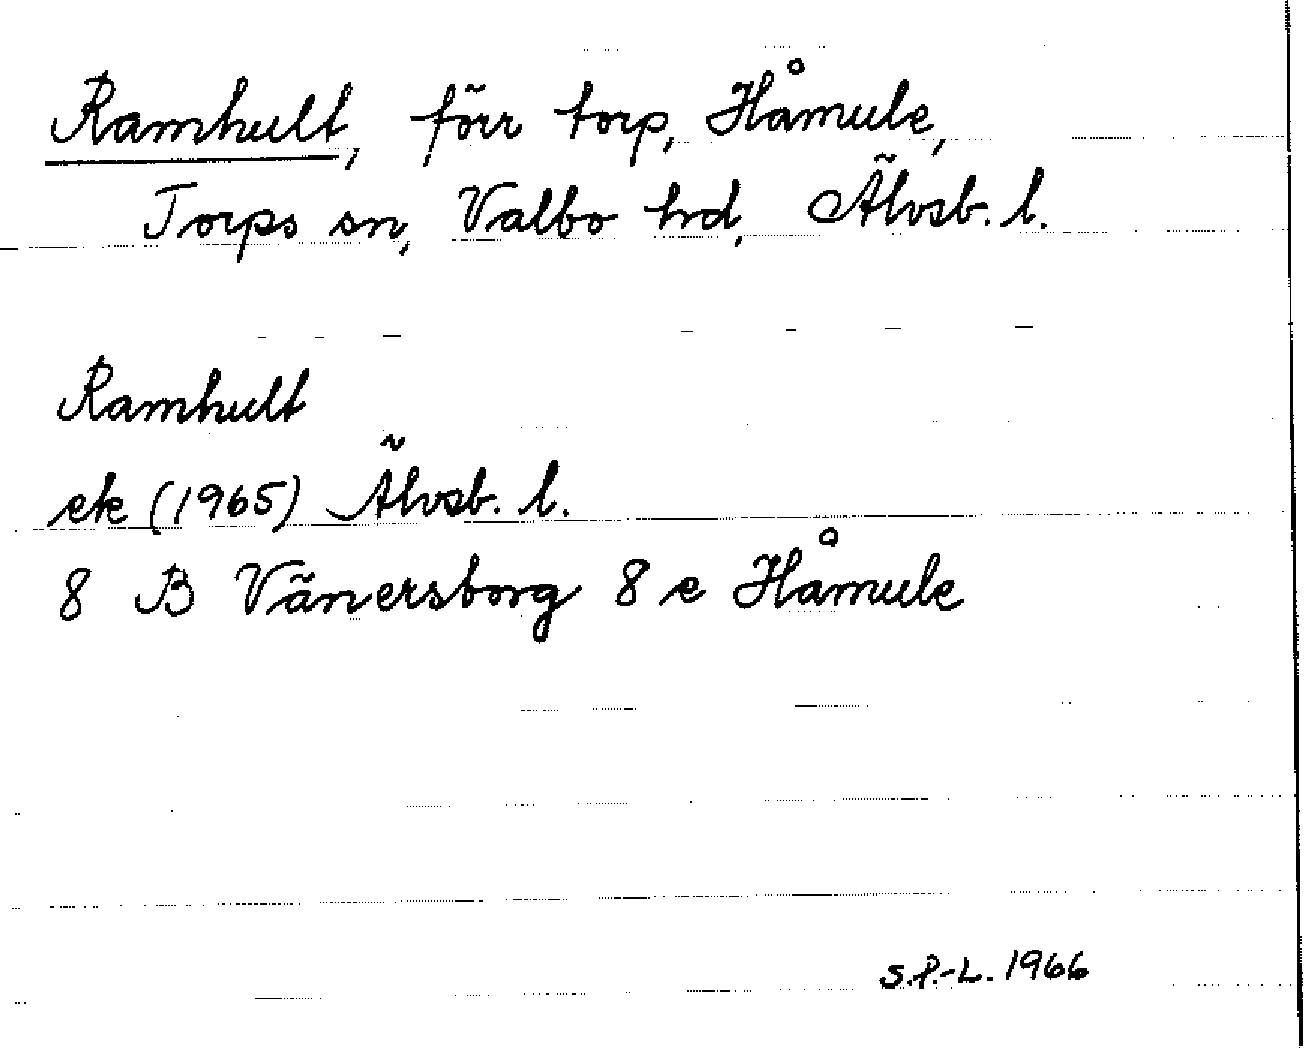 Ramhult, förr torp, Håmule,
Torps sn, Valbo hrd, Älvsb. l.
Ramhult
ek (1965) Älvsb. l.
8 B Vänersborg 8 e Håmule
S.P.-L. 1966